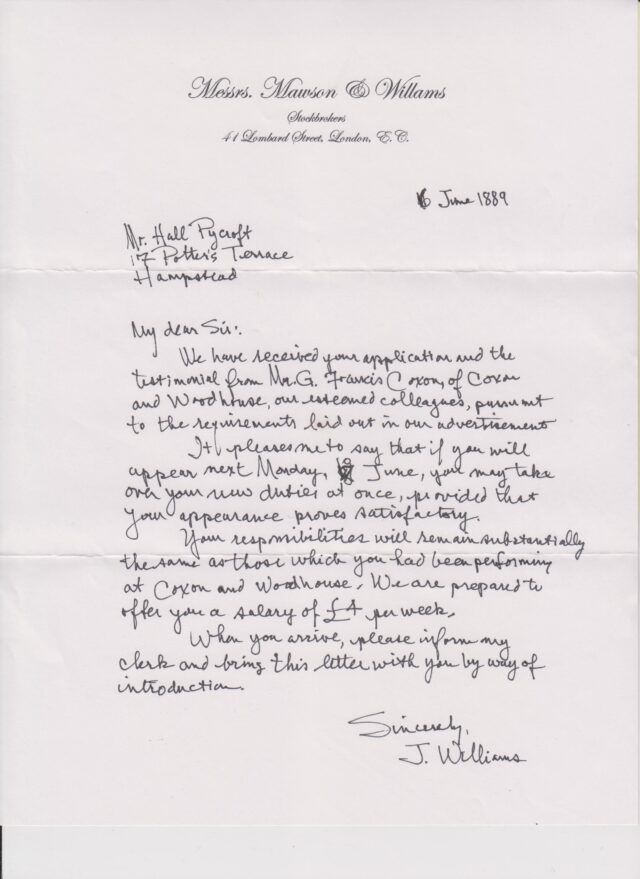 Messrs. Mawson & Willams
Stockbrokers
41 Lombard Street, London, E. C.
6 June 1889
Mr. Hall Pycroft
17 Potter's Terrace
Hampstead
My dear Sir:
We have received your application and the
testimonial from Mr. G. Francis Coxon, of Coxon
and Woodhouse, our esteemed colleagues, pursuant
to the requirements laid out in our advertisement
It pleases me to say that if you will
appear next Monday, June, you may take
over your new duties at once, provided that
your appearance proves satisfactory.
Your responsibilities will remain substantially
the same as those which you had been performing
at Coxon and Woodhouse. We are prepared to
offer you a salary of £4 per week.
When you arrive, please inform my
clerk and bring this letter with you by way of
introduction.
Sincerely,
J. Williams